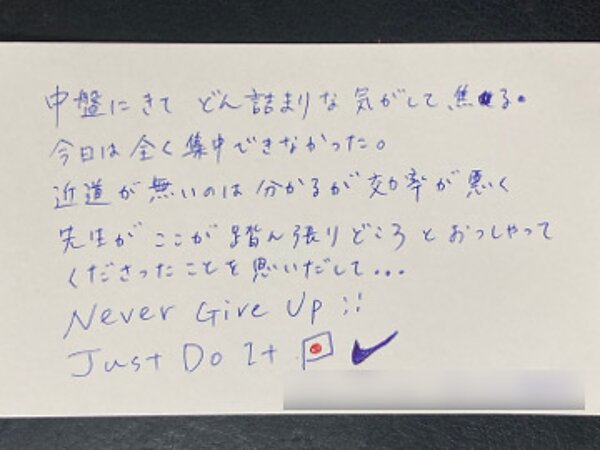 中盤にきて どん詰まりな気がして、焦る。
今日は全く集中できなかった。
近道が無いのは分かるが効率が悪く
先生がここが踏ん張りどころとおっしゃって
くださったことを思いだして...
Never Give Up !!
Just Do It